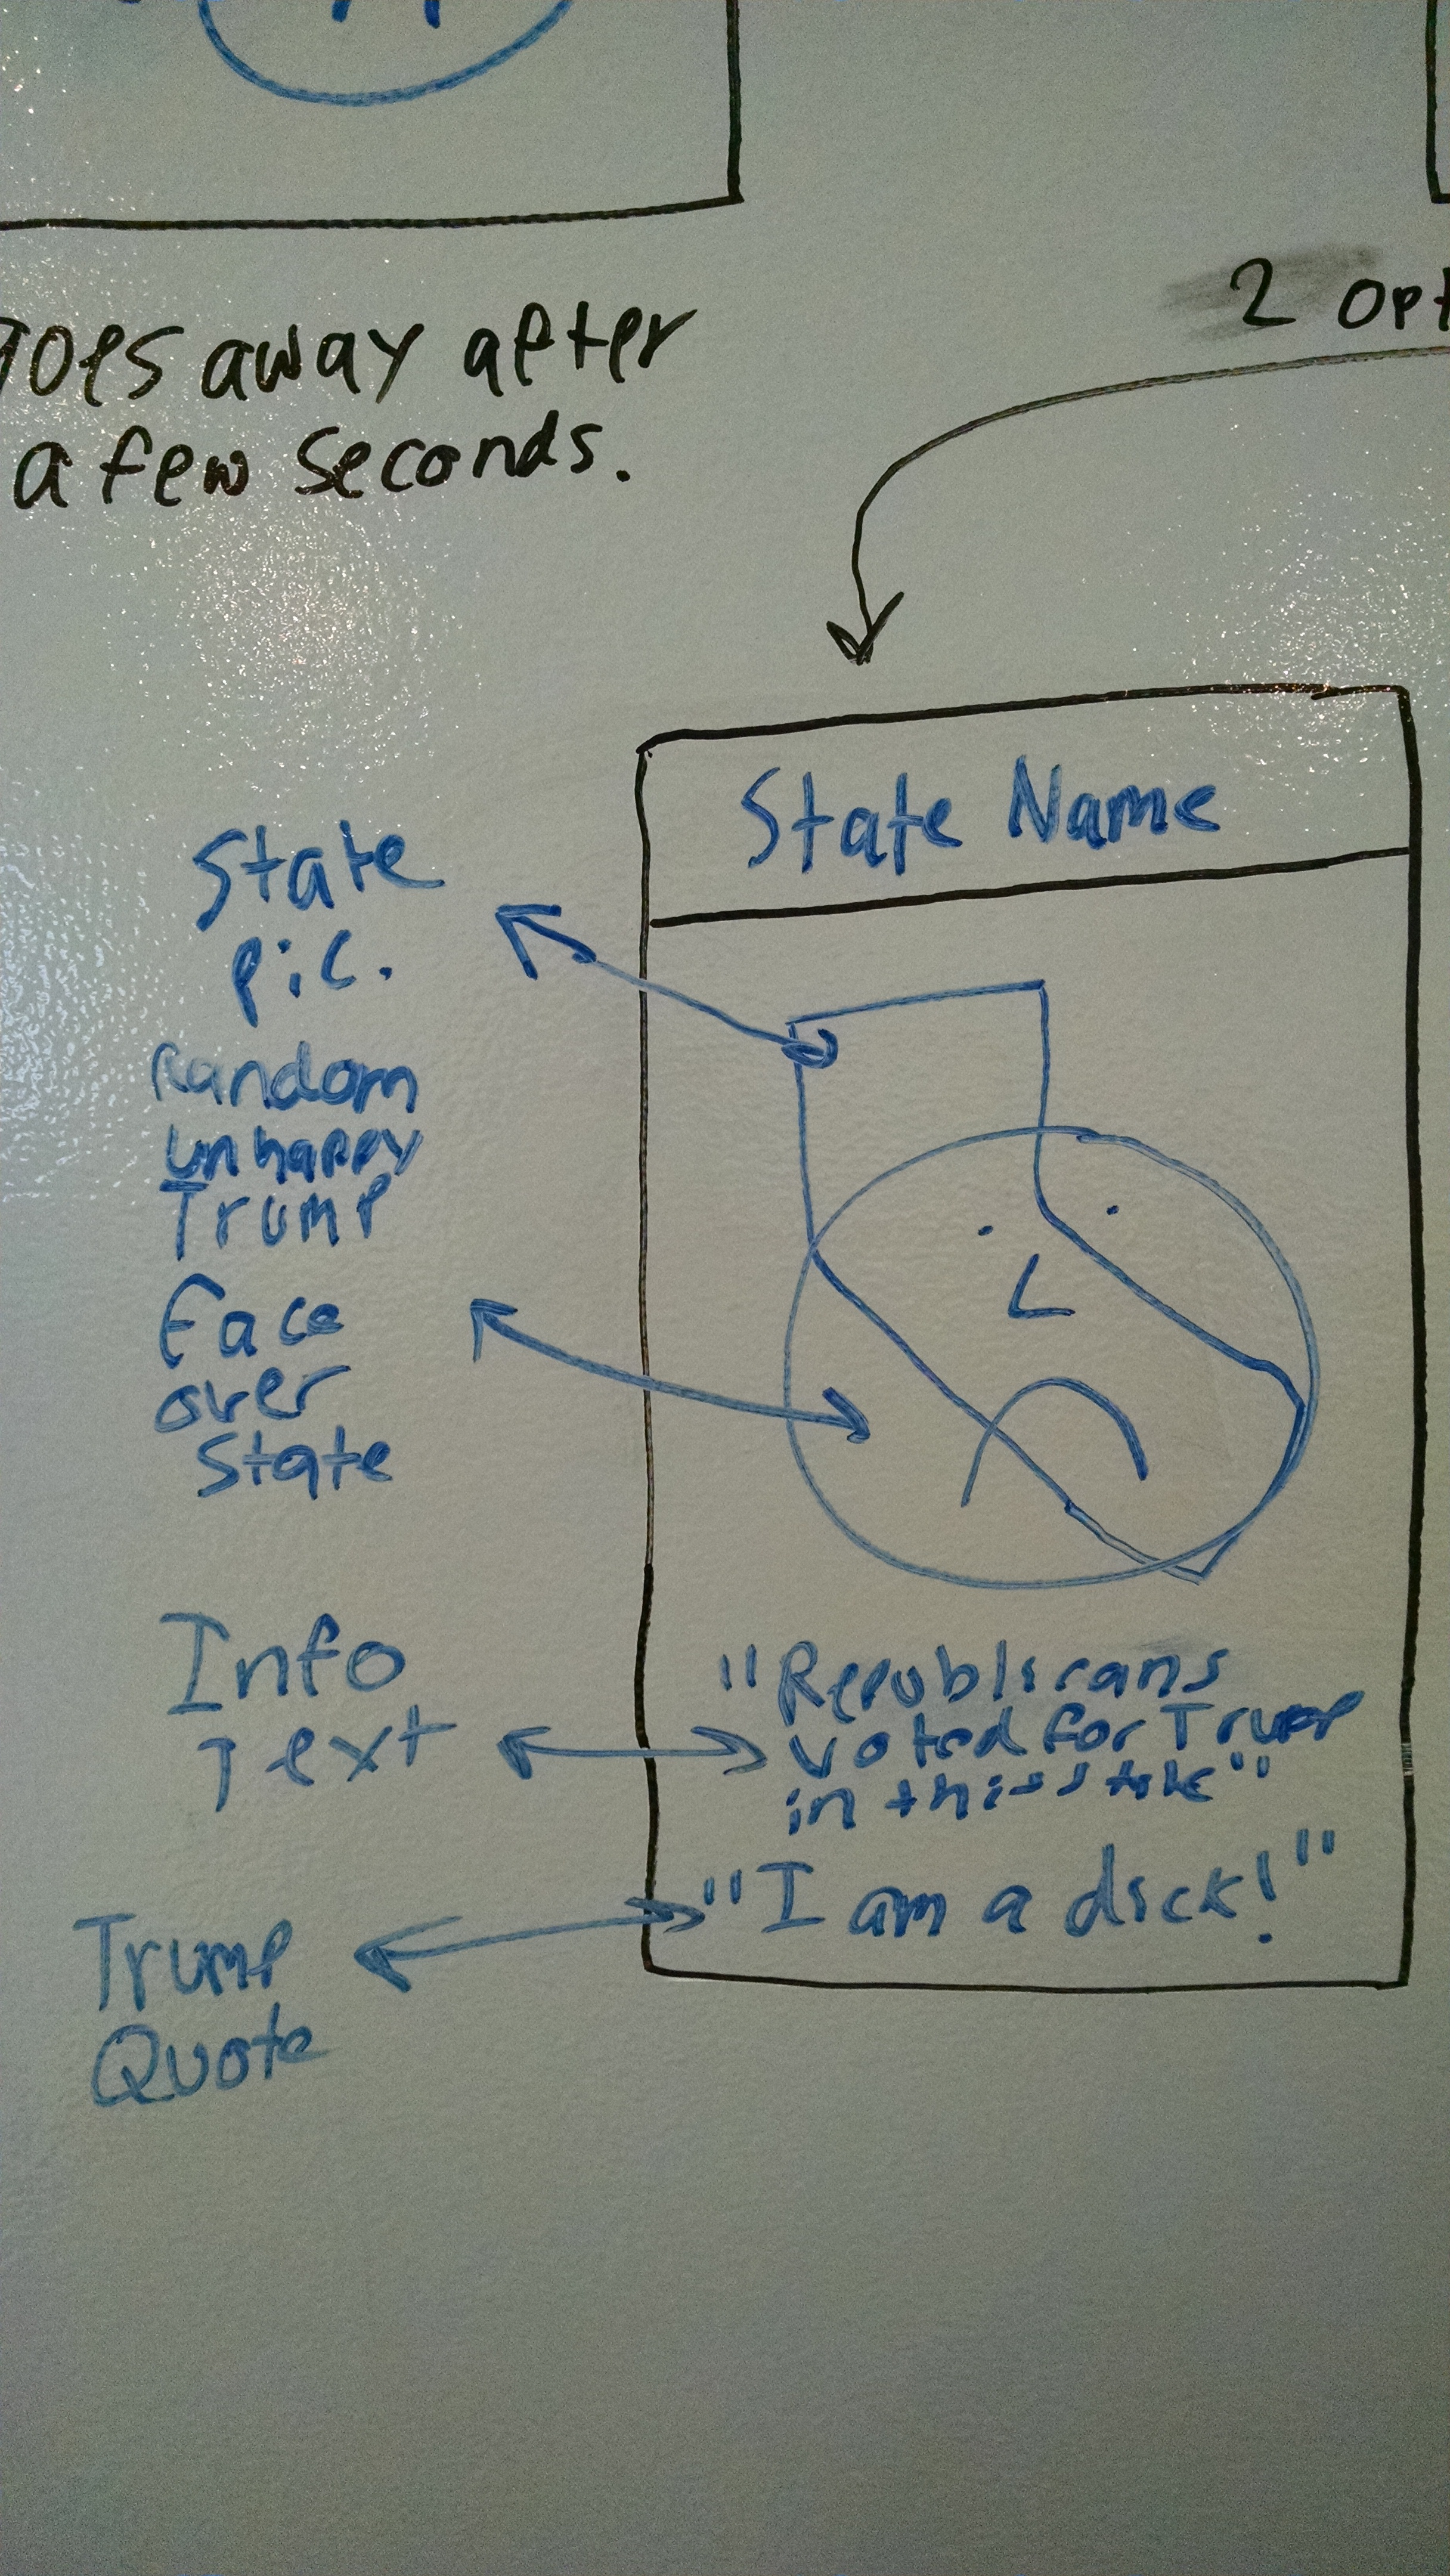 Goes away after
a few seconds.
2 opt
State Name
State
pic.
Random
unhappy
Trump
Face
over
State
Info
Text
"Republicans
voted for Trump
in this state"
"I am a dick!"
Trump
Quote